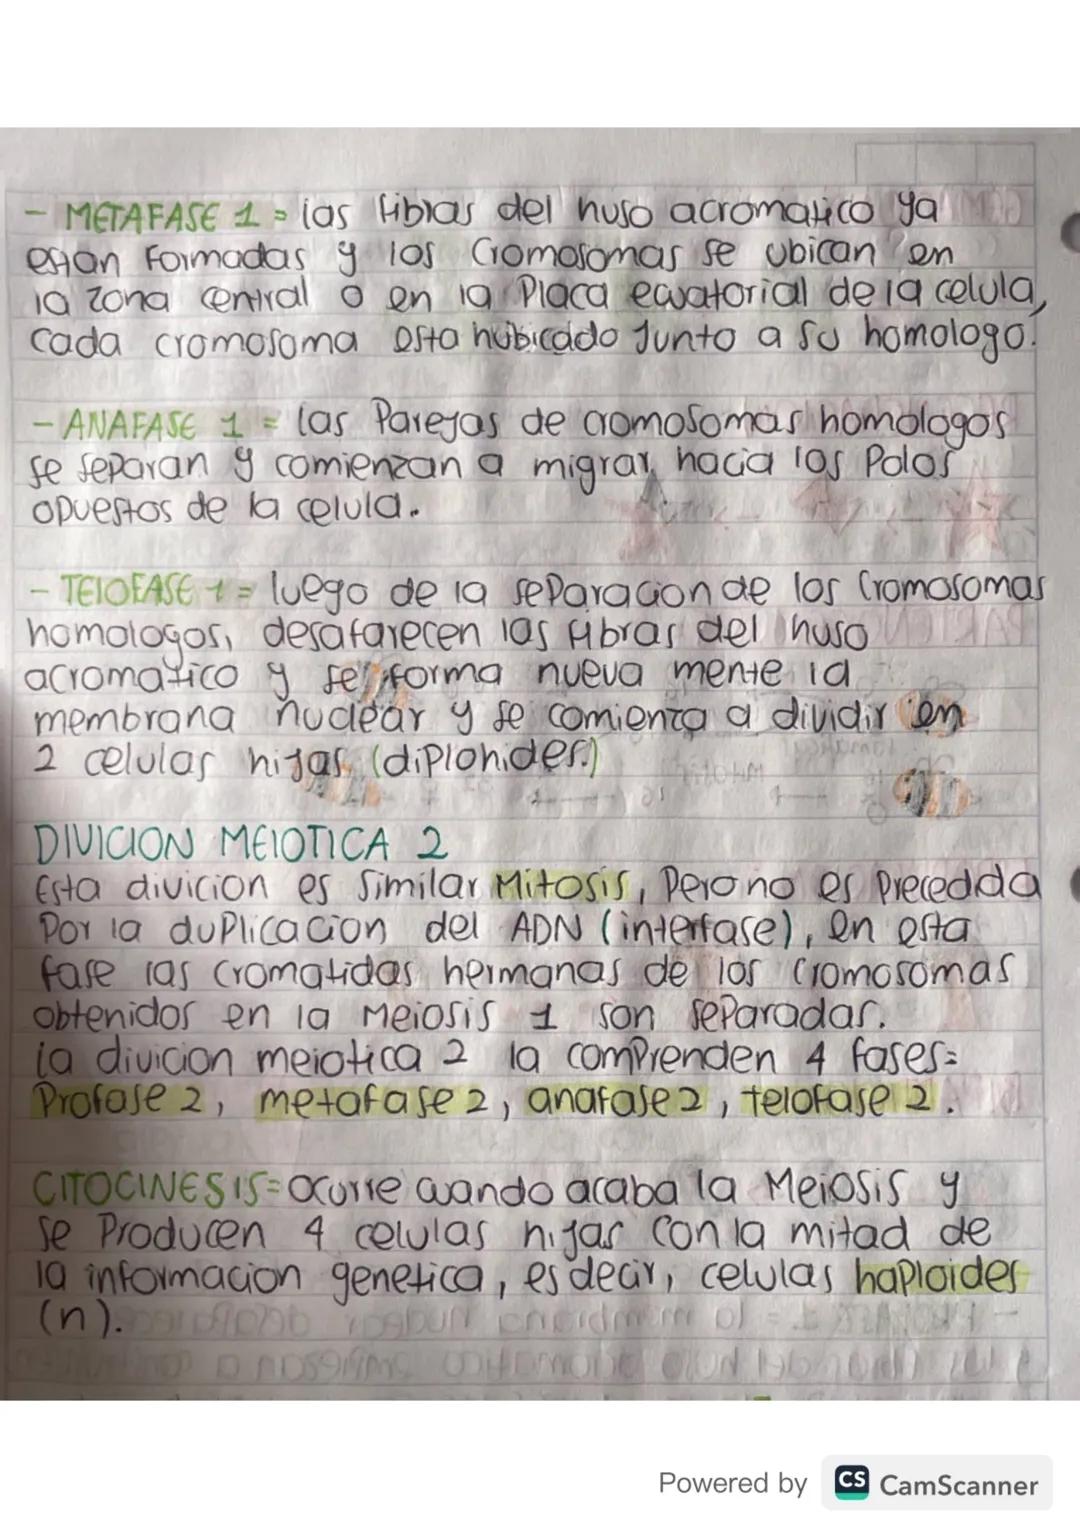 - METAFASE 1 = las fibras del huso acromatico ya
estan formadas y los Cromosomas se ubican en
la zona central o en la Placa ecuatorial de la celula,
cada cromosoma esta hubicado Junto a su homologo.
- ANAFASE 1 = las Parejas de cromosomas homologos
se separan y comienzan a migrar hacia los Polos
opuestos de la celula.
- TELOFASE 1 = luego de la separacion de los Cromosomas
homologos, desafarecen las fibras del huso
acromatico y se forma nueva mente la
membrana nuclear y se comienza a dividir en
2 celulas hijas (diplohides.)
DIVICION MEIOTICA 2
Esta divicion es similar Mitosis, Pero no es Precedida
Por la duplicacion del ADN (interfase), en esta
fase las cromatidas hermanas de los Cromosomas
obtenidos en la Meiosis 1 son separadas.
la divicion meiotica 2 la comprenden 4 fases=
Profase 2, metafase 2, anafase 2, telofase 2.
CITOCINESIS= Ocurre cuando acaba la Meiosis y
se Producen 4 celulas hijas con la mitad de
la informacion genetica, es decir, celulas haploides
(n).
Powered by CS CamScanner